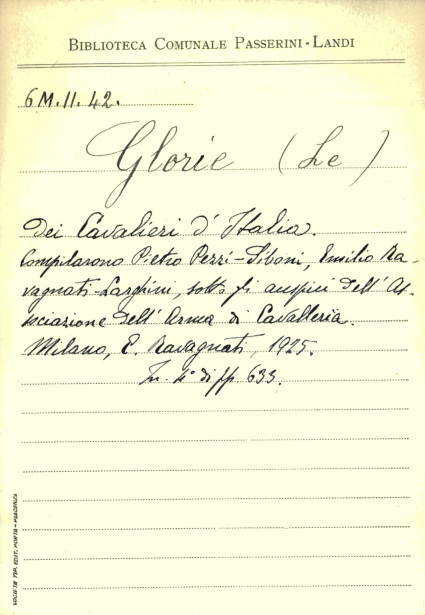 BIBLIOTECA COMUNALE PASSERINI-LANDI
6 M. 11. 42.
Glorie (Le)
dei Cavalieri d'Italia.
Compilarono Pietro Perri-Siboni, Emilio Ra-
vagnati-Larghini, sotto gli auspici dell'As-
sociazione dell'Arma di Cavalleria.
Milano, E. Ravagnati, 1925.
In 4° di pp. 633.
SOCIETÀ TIP. EDIT. PORTA - PIACENZA